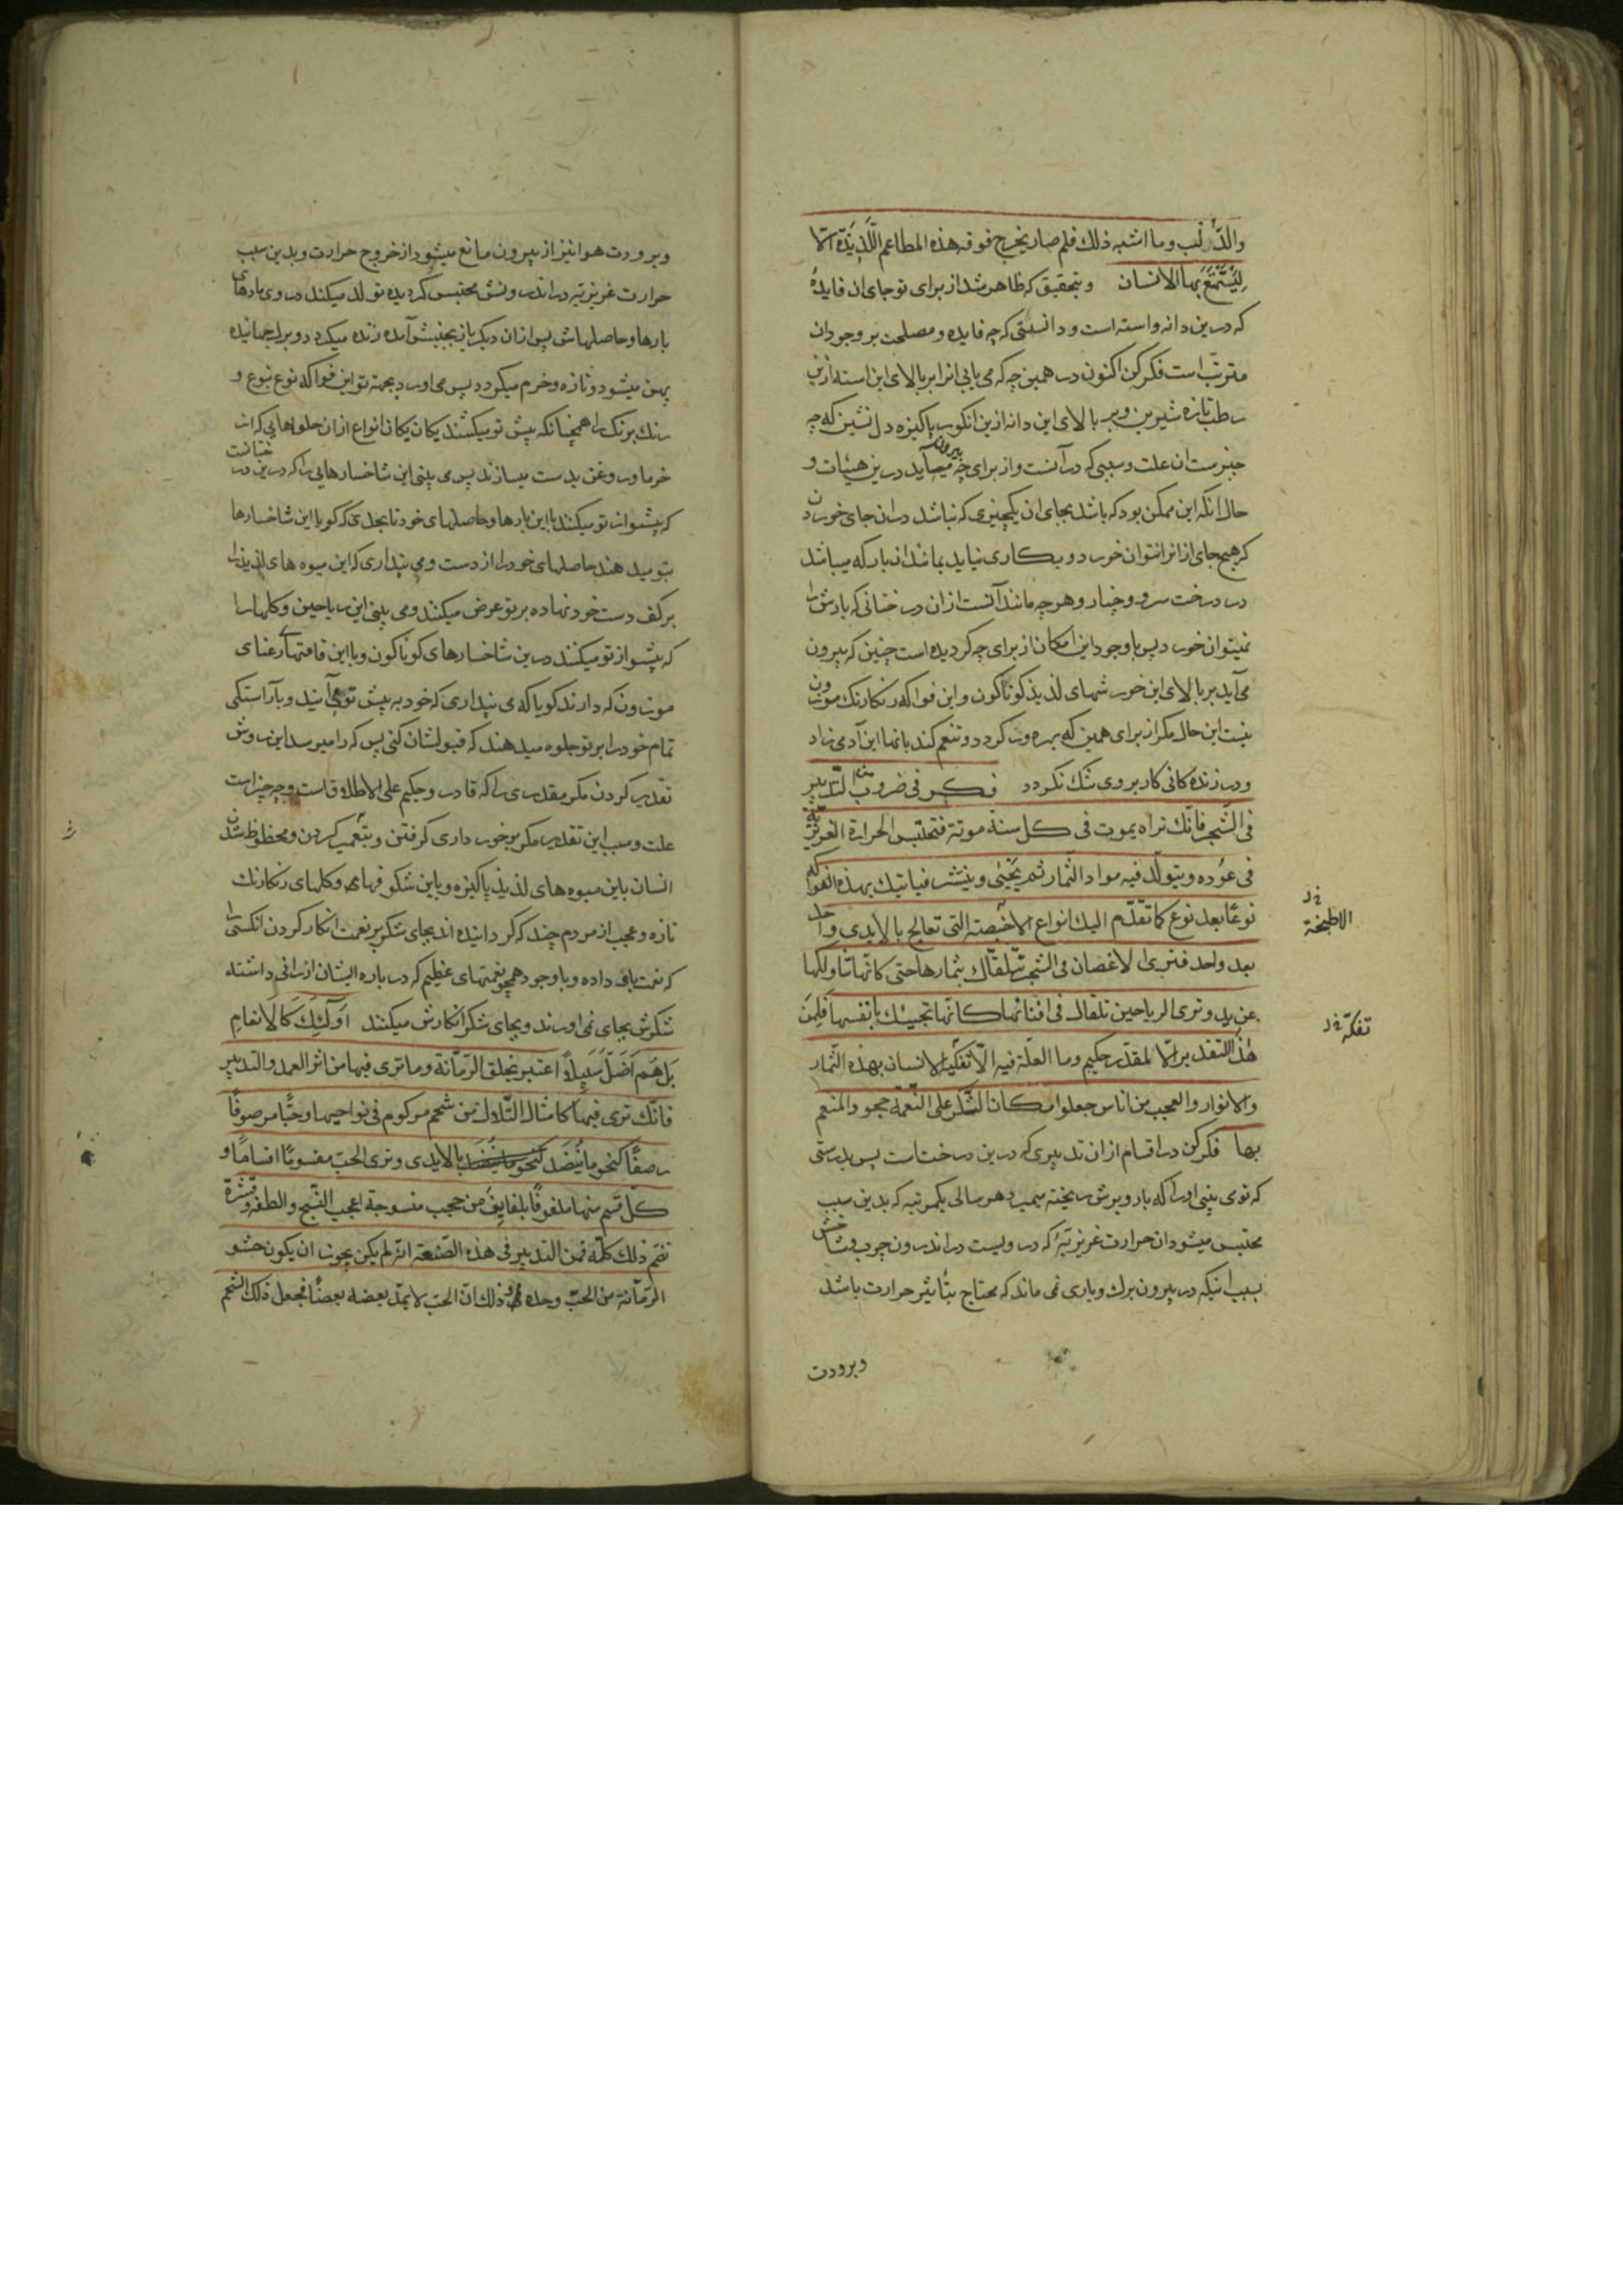 والدّلب وما اشبه ذلك فلم صار يخرج فوقه هذه المطاعم اللّذيذة الّا
لِيَستَمتِعَ بها الانسان وبتحقيق كه ظاهر شد از برای تو جای ان فایدهٔ
که درین دانه واسته است ودانستی که چه فایده ومصلحت بر وجود ان
مترتّب است فکر کن اکنون در همین چه که می یابی انرا بر بالای این استه ازین
رطب تازه شیرین وبر بالای این دانه ازین انکور پاکیزه دل نشین که چه
چیزست ان علت وسببی که در آنست واز برای چه بیرون میآید درین هیئات و
حال انکه این ممکن بود که باشد بجای ان یکچیزی که نباشد دران جای خوردن
که هیچ جای ازانرا نتوان خورد وبکاری نیاید بمانند ان بار که میباشد
در درخت سرو وچنار وهرچه مانند آنست ازان درختانی که بارش را
نمیتوان خورد پس با وجود این امکان از برای چه کردیده است چنین که بیرون
می آید بر بالای این خورشهای لذیذ کوناکون واین فواکه رنکارنك موزون
نیست این حال مکر از برای همین که بهره ور کردد وتنعم کند بانها این آدمی زاد
ودر زنده کانی کار بر وی تنك نکردد فكر فی ضروب من التّدبیر
فی الشّجر فانّك تراه یموت فی كل سنة موتة فتحتبس الحرارة الغریزیّة
فی عوده ویتولّد فیه مواد الثّمار ثم یحیی وینتشر فیاتیك بهذه الفواكه
نوعًا بعد نوع كما تقدّم الیك انواع الاخبصة التی تعالج بالایدی واحدا
بعد واحد فتری الاغصان فی الشجر تتلقّاك بثمارها حتی كانّها تناولكها
عن ید وتری الریاحین تلقّاك فی افنانها كانّها تجیئك بانفسها فَلِمَن
هٰذا التقدیر الّا لمقدّر حكیم وما العلّة فیه الّا تفكیه الانسان بهذه الثّمار
والانوار والعجب من اناس جعلوا مكان الشّكر علی النّعمة جحود المنعم
بها فکر کن در اقسام ازان تدبیری که درین درختاست پس بدرستی
که تو می بینی اورا که بار وبرش ریخته میمیرد هر سالی یکمرتبه که بدین سبب
محتبس میشود ان حرارت غریزیّهٔ که در ویست در اندرون چوب وشاخش
بسبب اینکه در بیرون برك وباری نمی ماند که محتاج بتأثیر حرارت باشد
وبرودت
الاطبخة
تفكّه
وبرودت هوا نیز از بیرون مانع میشود از خروج حرارت وبدین سبب
حرارت غریزیّه در اندرونش محتبس کردیده تولد میکند در وی مادهای
بارها وحاصلهاش پس ازان دیکر باز بجنبش آمده زنده میکردد
پهن میشود وتازه وخرم میکردد پس می اورد بجهة تو این فواکه نوع بنوع و
رنك برنك را همچنانکه پیش تو میکشند یکان یکان انواع ازان حلواهایی که از
خرما وروغن بدست میسازند پس می بینی این شاخسارهایی را که درین درختانست
که پیشواز تو میکنند با این بارها وحاصلهای خود تا بحدی که کویا این شاخسارها
بتو میدهند حاصلهای خودرا از دست ومی پنداری که این میوه های لذیذرا
برکف دست خود نهاده بر تو عرض میکنند ومی بینی این ریاحین وکلهارا
که پیشواز تو میکنند درین شاخسارهای کوناکون وبا این قامتهای رعنای
موزون که دارند کویا که می پنداری که خود به پیش تو می آیند وبآراستکی
تمام خودرا بر تو جلوه میدهند که قبولشان کنی پس کرا میرسد این روش
تقدیر کردن مکر مقدری را که قادر وحکیم علی الاطلاق است وچه چیزاست
علت وسبب این تقدیر مکر برخورداری کرفتن وتنعم کردن ومحظوظ شدن
انسان باین میوه های لذیذ پاکیزه وباین شکوفها وکلهای رنکارنك
تازه وعجب از مردم چند که کردانیده اند بجای شکر بر نعمت انکار کردن انکسی را
که نعمت باو داده وبا وجود همچو نعمتهای عظیم که درباره ایشان ارزانی داشته
شکرش بجای نمی اورند وبجای شکر انکارش میکنند اُولٰئِكَ كَالْاَنعامِ
بَل هُم اَضَلُّ سَبِیلًا اعتبر بخلق الرّمّانة وما تری فیها من اثر العمد والتدبیر
فانّك تری فیها كامثال التّلال من شحم مركوم فی نواحیها وحبًّا مرصوفًا
رصفًا كنحو ما یُنضَد بالایدی وتری الحبّ مقسومًا اقسامًا و
كلّ قسم منها ملفوفًا بلفایف من حجب منسوجة اعجب النّسج والطفه وقشرة
تضم ذلك كلّه فمن التدبیر فی هذه الصّنعة انّه لم یكن یجوز ان یكون حشو
الرّمّانة من الحبّ وحده وذلك انّ الحبّ لا یمدّ بعضه بعضًا فجعل ذلك الشّحم